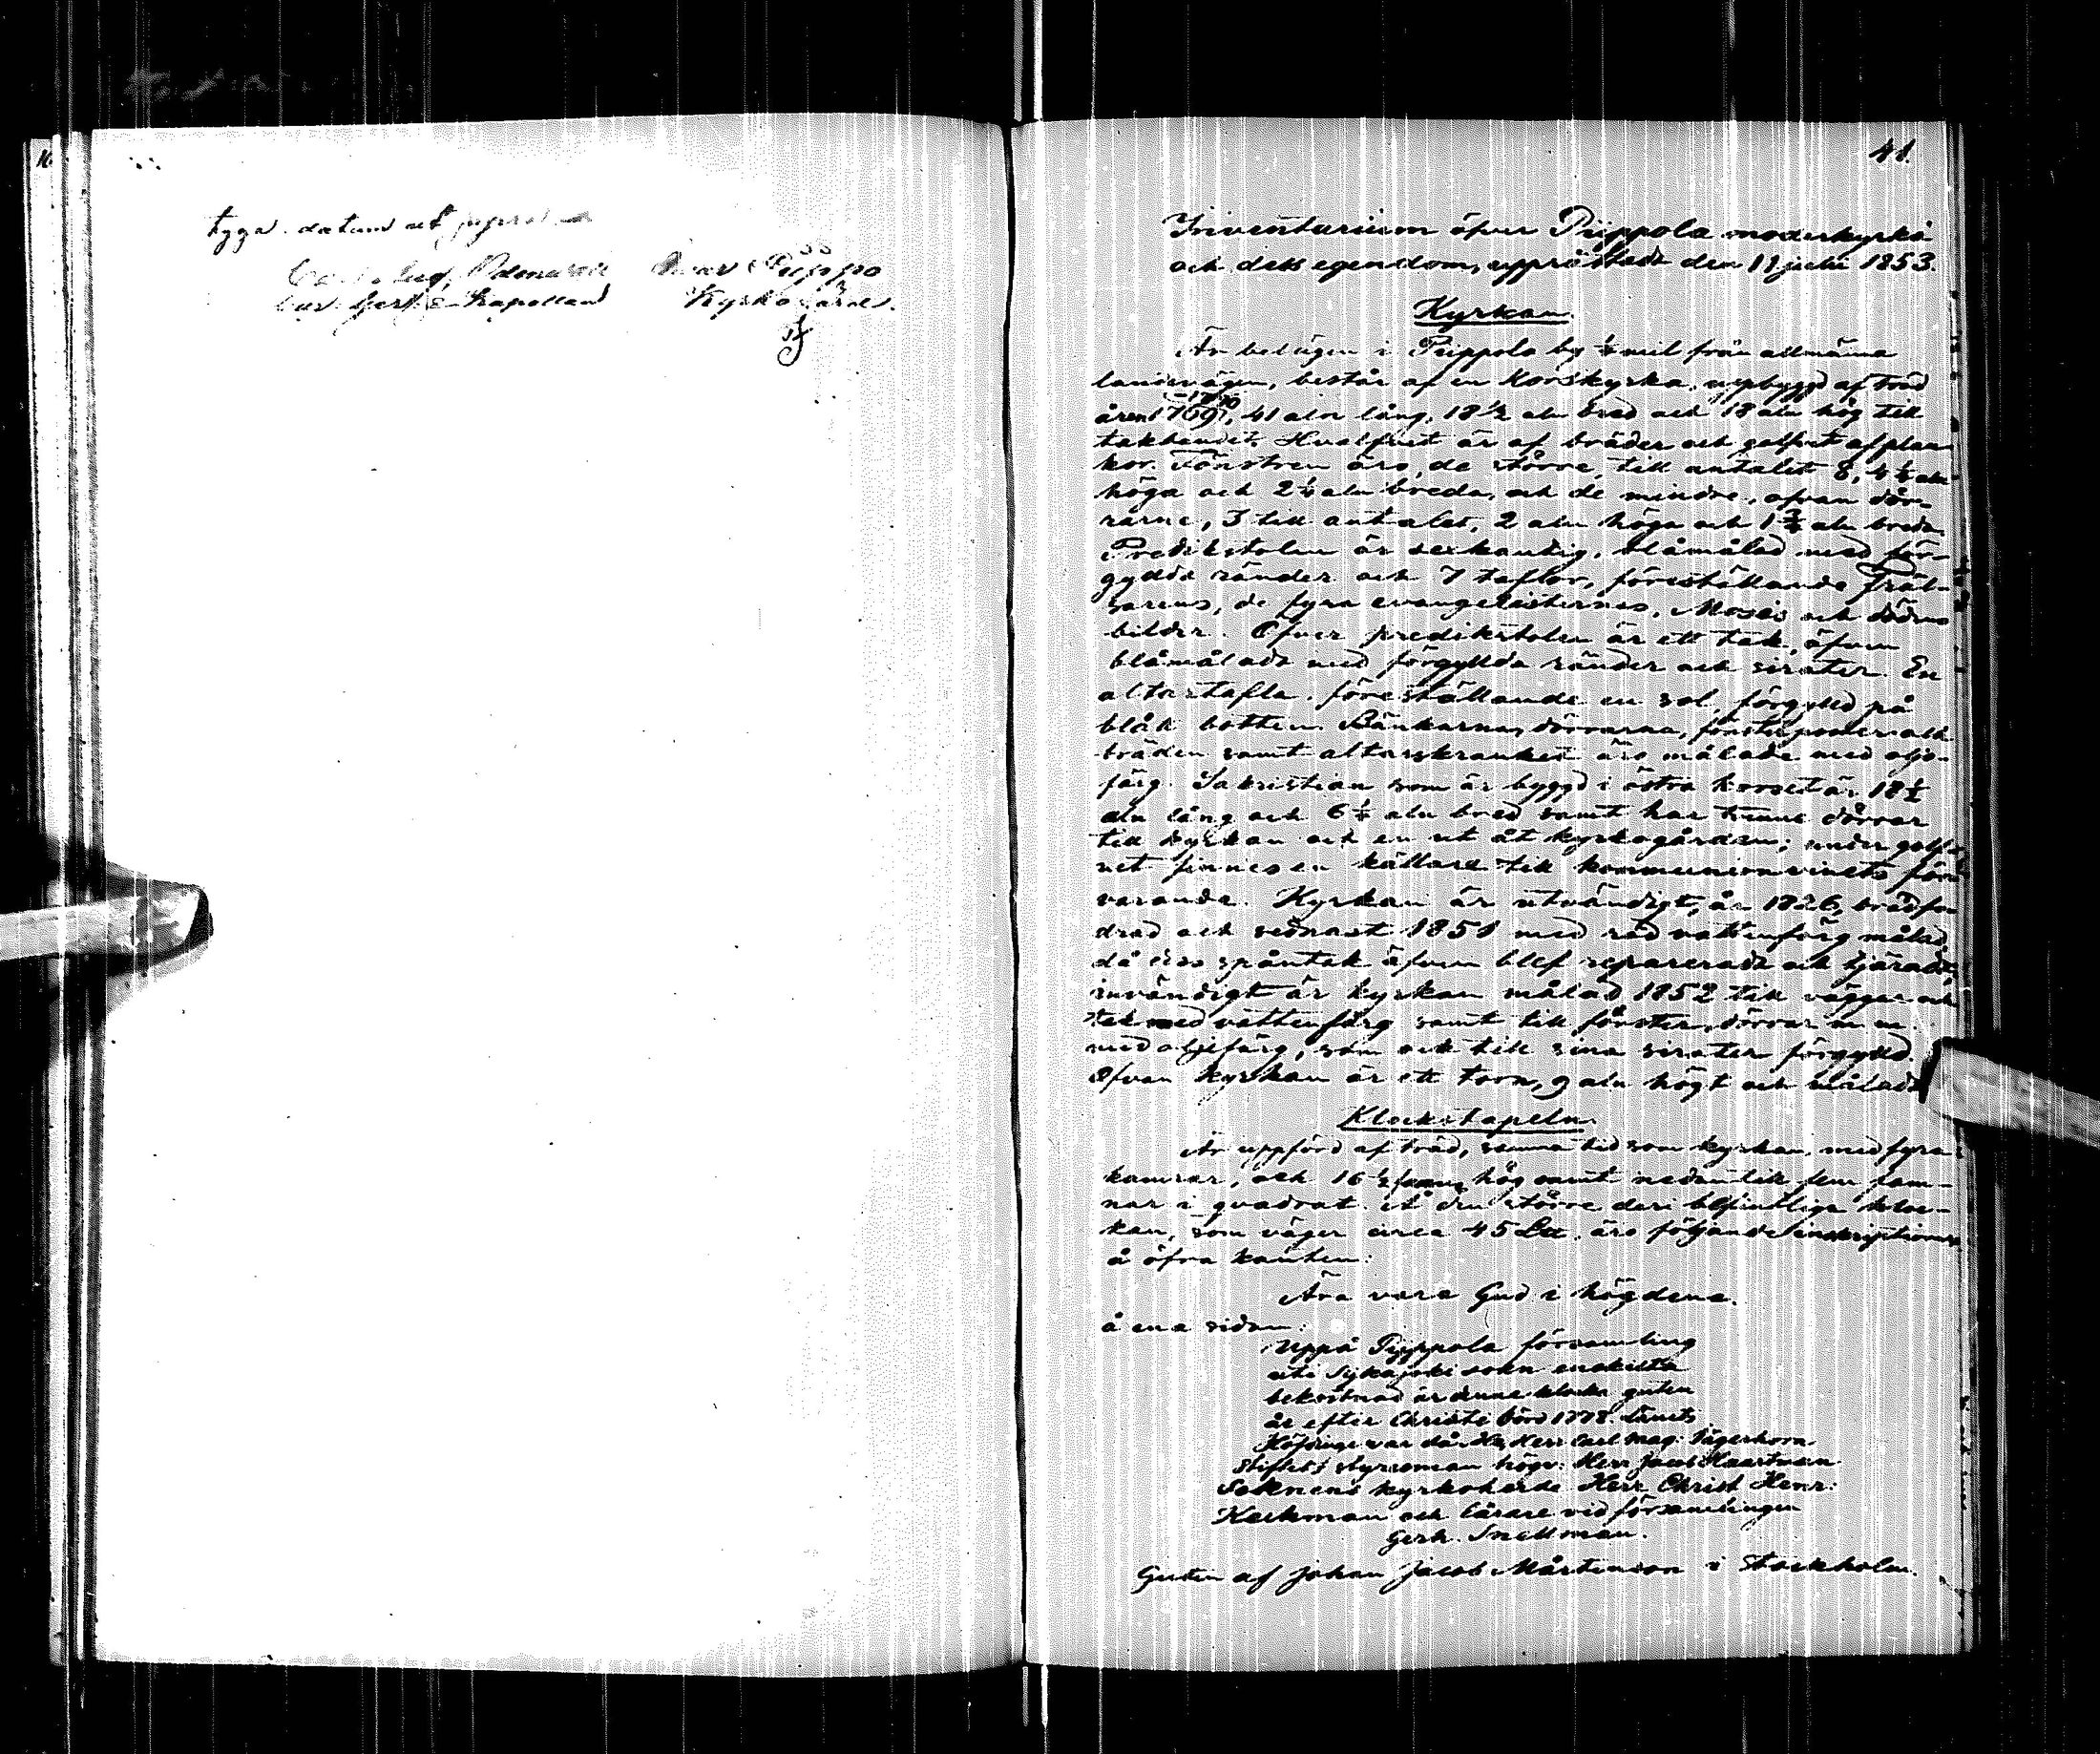 tyga. datum ut
Piippo
Kapellan Kyrkovärd.
41.
Inventarium öfver Piippola moderkyrka
och dess egendom, upprättadt den 11 julii 1853.
Kyrkan.
Är belägen i Piippola by ¼ mil från allmänna
landsvägen, består af en Korskyrka, uppbyggd af träd
åren 1769-1770, 41 aln lång, 18½ aln bred och 18 aln hög till
takbandet. Hvalfvet är af bräder och golfvet af plan-
kor. Fönstren äro, de större till antalet 8, 4½ aln
höga och 2¼ aln breda, och de mindre, ofvan dör-
rarne, 3 till antalet, 2 aln höga och 1¾ aln breda.
Predikstolen är sexkantig, blåmålad med för-
gyllda ränder och 7 taflor, föreställande Fräl-
sarens, de fyra evangelisternes, Mosis och dödens
bilder. Öfver predikstolen är ett tak, äfven
blåmåladt med förgyllda ränder och sirater. En
altartafla, föreställande en sol, förgylld på
blå botten. Bänkarna, dörrarna, fönsterposter och
bräden samt altarskranket äro målade med olje-
färg. Sakristian som är byggd i östra korset är 18½
aln lång och 6½ aln bred samt har tvenne dörrar
till kyrkan och en ut åt kyrkogården; under golf-
vet finnes en källare till kommunionvinets för-
varande. Kyrkan är utvändigt, år 1826, brädfo-
drad och sednast 1851 med röd vattenfärg målad,
då dess spåntak äfven blef repareradt och tjäradt;
invändigt är kyrkan målad 1852 till väggar och
tak med vattenfärg samt till fönster, dörrar m. m.
med oljefärg, som ock till sina sirater förgylld.
Ofvan kyrkan är ett torn, 9 aln högt och måladt.
Klockstapeln.
Är uppförd af träd, samma tid som kyrkan, med fyra
kamrar, och 16½ famnar hög samt nedan till fem fam-
nar i quadrat. Å den större deri befintliga kloc-
kan, som väger circa 45 L℔. äro följande inskriptioner
å öfra kanten:
Ära vare Gud i högdene.
å ena sidan:
Uppå Piippola församling
uti Sijkajoki sokn enskilta
bekostnad är denna klocka guten
år efter Christi börd 1778. Länets
Höfdinge var då Herr Carl Mag: Jägerhorn
Stiftets styresman högv: Herr Jacob Haartman
Soknens kyrkoherde Herr Christ Henr:
Keckman och lärare vid församlingen
Gerh. Snellman.
Guten af Johan Jacob Mårtenson i Stockholm.